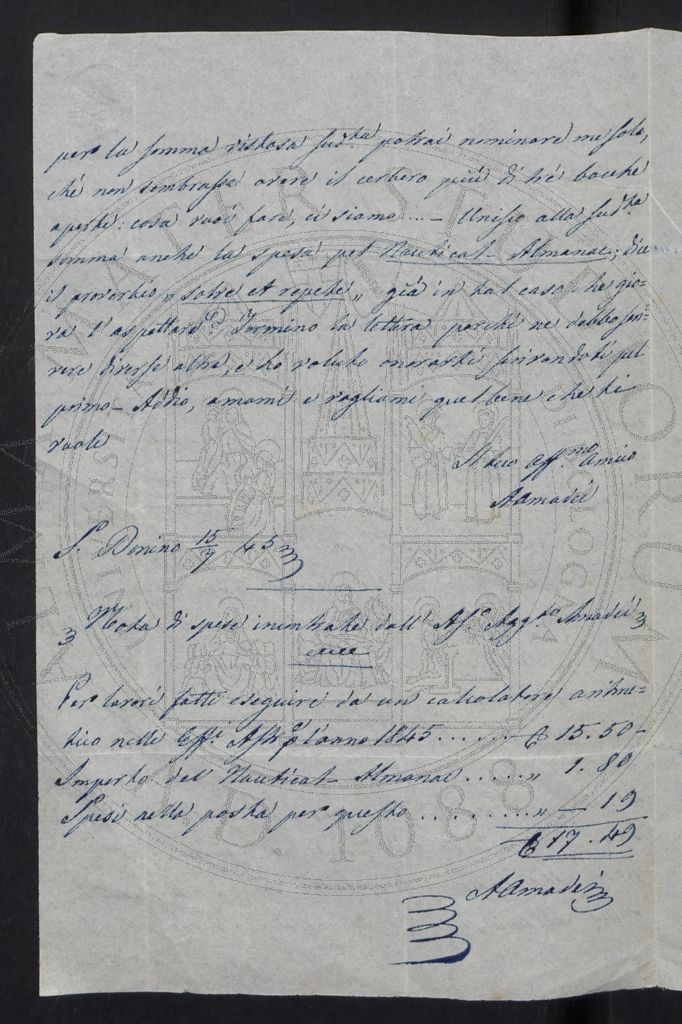 per la somma vistosa sud.ta potrai nominare me solo,
ché non sembrasse avere il cerbero più di tré bocche
aperte: cosa vuoi fare, ci siamo.... – Unisco alla sud.ta
somma anche la spesa pel Nautical Almanac; dice
il proverbio „ solve et repete „ già in tal caso che gio-
va l'aspettare? Termino la lettera perché ne debbo scri-
vere diverse altre, e ho voluto onorarti scrivendoti pel
primo – Addio, amami e vogliami quel bene che ti
vuole
Il tuo aff.mo amico
AAmadei
S. Donino 15/7 45
Nota di spese incontrate dall' As.o Agg.to Amadei
Per lavori fatti eseguire da un calcolatore aritme-
tico nelle Eff.i Astr. pel anno 1845 ...... 15.50–
Importo del Nautical Almanac ...... „ 1.80
Spesi nella posta per questo .......... „ – 19
17.49
AAmadei
ALMA MATER STUDIORUM
A.D. 1088